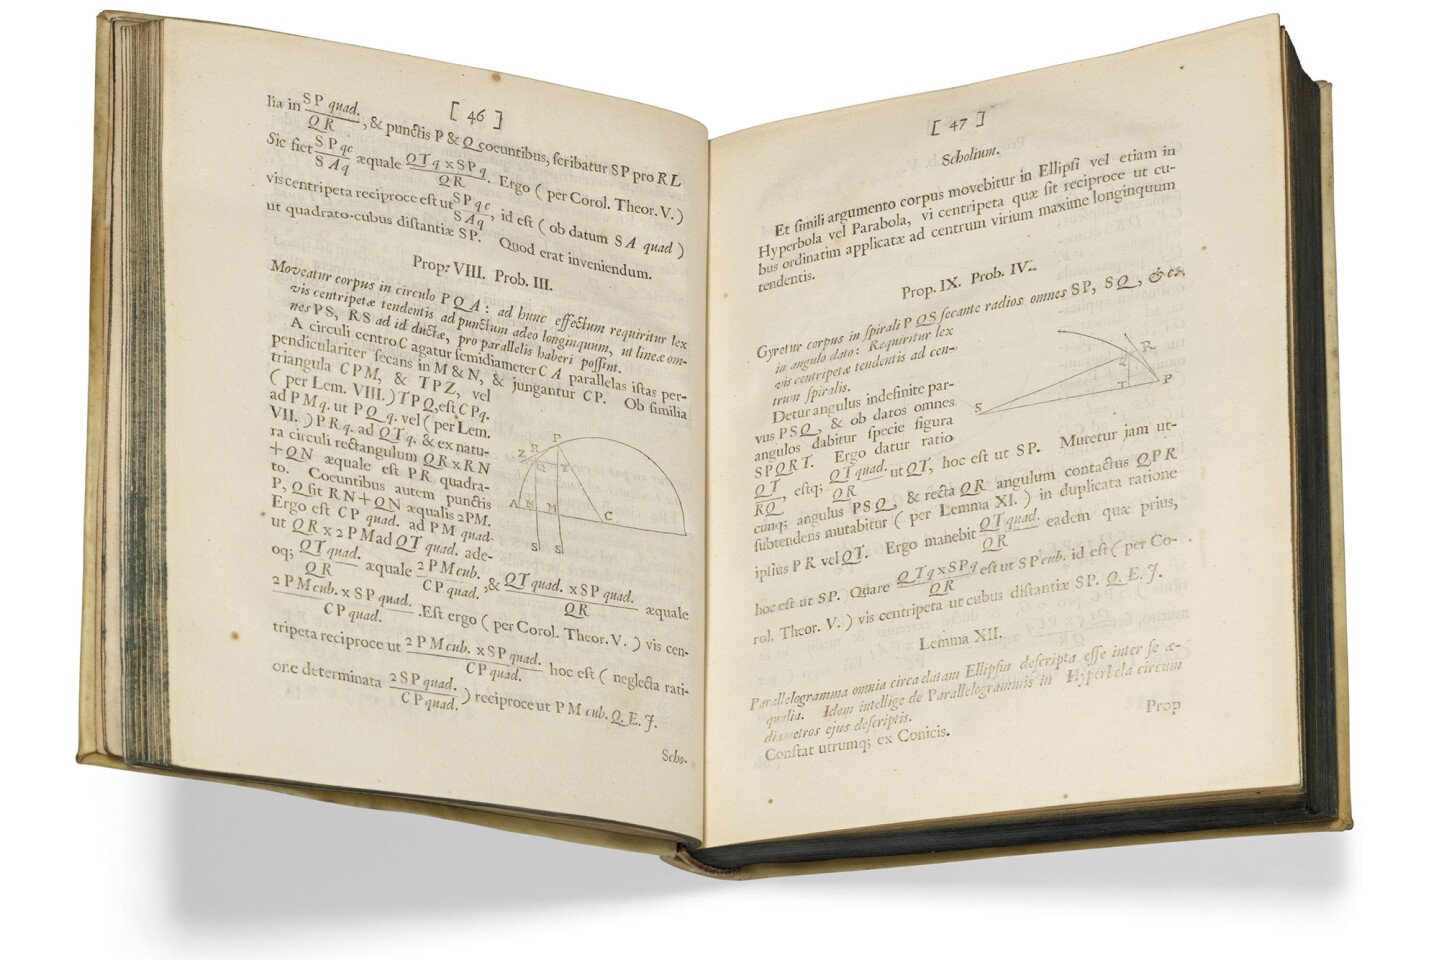 [ 46 ]
lia in SP quad./QR, & punctis P & Q coeuntibus, ſcribatur SP pro RL
Sic fiet SPqc/SAq æquale QTq x SPq/QR. Ergo ( per Corol. Theor. V. )
vis centripeta reciproce eſt ut SPqc/SAq, id eſt ( ob datum SA quad )
ut quadrato-cubus diſtantiæ SP. Quod erat inveniendum.
Prop: VIII. Prob. III.
Moveatur corpus in circulo PQA: ad hunc effectum requiritur lex
vis centripetæ tendentis ad punctum adeo longinquum, ut lineæ om-
nes PS, RS ad id ductæ, pro parallelis haberi poſſint.
A circuli centro C agatur ſemidiameter CA parallelas iſtas per-
pendiculariter ſecans in M & N, & jungantur CP. Ob ſimilia
triangula CPM, & TPZ, vel
( per Lem. VIII. ) TPQ, eſt CPq.
ad PMq. ut PQq. vel ( per Lem.
VII. ) PRq. ad QTq. & ex natu-
ra circuli rectangulum QR x RN
+ QN æquale eſt PR quadra-
to. Coeuntibus autem punctis
P, Q ſit RN + QN æqualis 2PM.
Ergo eſt CP quad. ad PM quad.
ut QR x 2PM ad QT quad. ade-
oq; QT quad./QR æquale 2PM cub./CP quad., & QT quad. x SP quad./QR æquale
2PM cub. x SP quad./CP quad. . Eſt ergo ( per Corol. Theor. V. ) vis cen-
tripeta reciproce ut 2PM cub. x SP quad./CP quad. hoc eſt ( neglecta rati-
one determinata 2SP quad./CP quad. ) reciproce ut PM cub. Q. E. J.
Scho-
P
Z R
Q T
A N M C
S S
[ 47 ]
Scholium.
Et ſimili argumento corpus movebitur in Ellipſi vel etiam in
Hyperbola vel Parabola, vi centripeta quæ ſit reciproce ut cu-
bus ordinatim applicatæ ad centrum virium maxime longinquum
tendentis.
Prop. IX. Prob. IV.
Gyretur corpus in ſpirali PQS ſecante radios omnes SP, SQ, &c.
in angulo dato: Requiritur lex
vis centripetæ tendentis ad cen-
trum ſpiralis.
Detur angulus indefinite par-
vus PSQ, & ob datos omnes
angulos dabitur ſpecie figura
SPQRT. Ergo datur ratio
QT/RQ, eſtq; QT quad./QR ut QT, hoc eſt ut SP. Mutetur jam ut-
cunq; angulus PSQ, & recta QR angulum contactus QPR
ſubtendens mutabitur ( per Lemma XI. ) in duplicata ratione
ipſius PR vel QT. Ergo manebit QT quad./QR eadem quæ prius,
hoc eſt ut SP. Quare QTq x SPq/QR eſt ut SP cub. id eſt ( per Co-
rol. Theor. V. ) vis centripeta ut cubus diſtantiæ SP. Q. E. J.
Lemma XII.
Parallelogramma omnia circa datam Ellipſin deſcripta eſſe inter ſe æ-
qualia. Idem intellige de Parallelogrammis in Hyperbola circum
diametros ejus deſcriptis.
Conſtat utrumq; ex Conicis.
Prop
R
T P
S